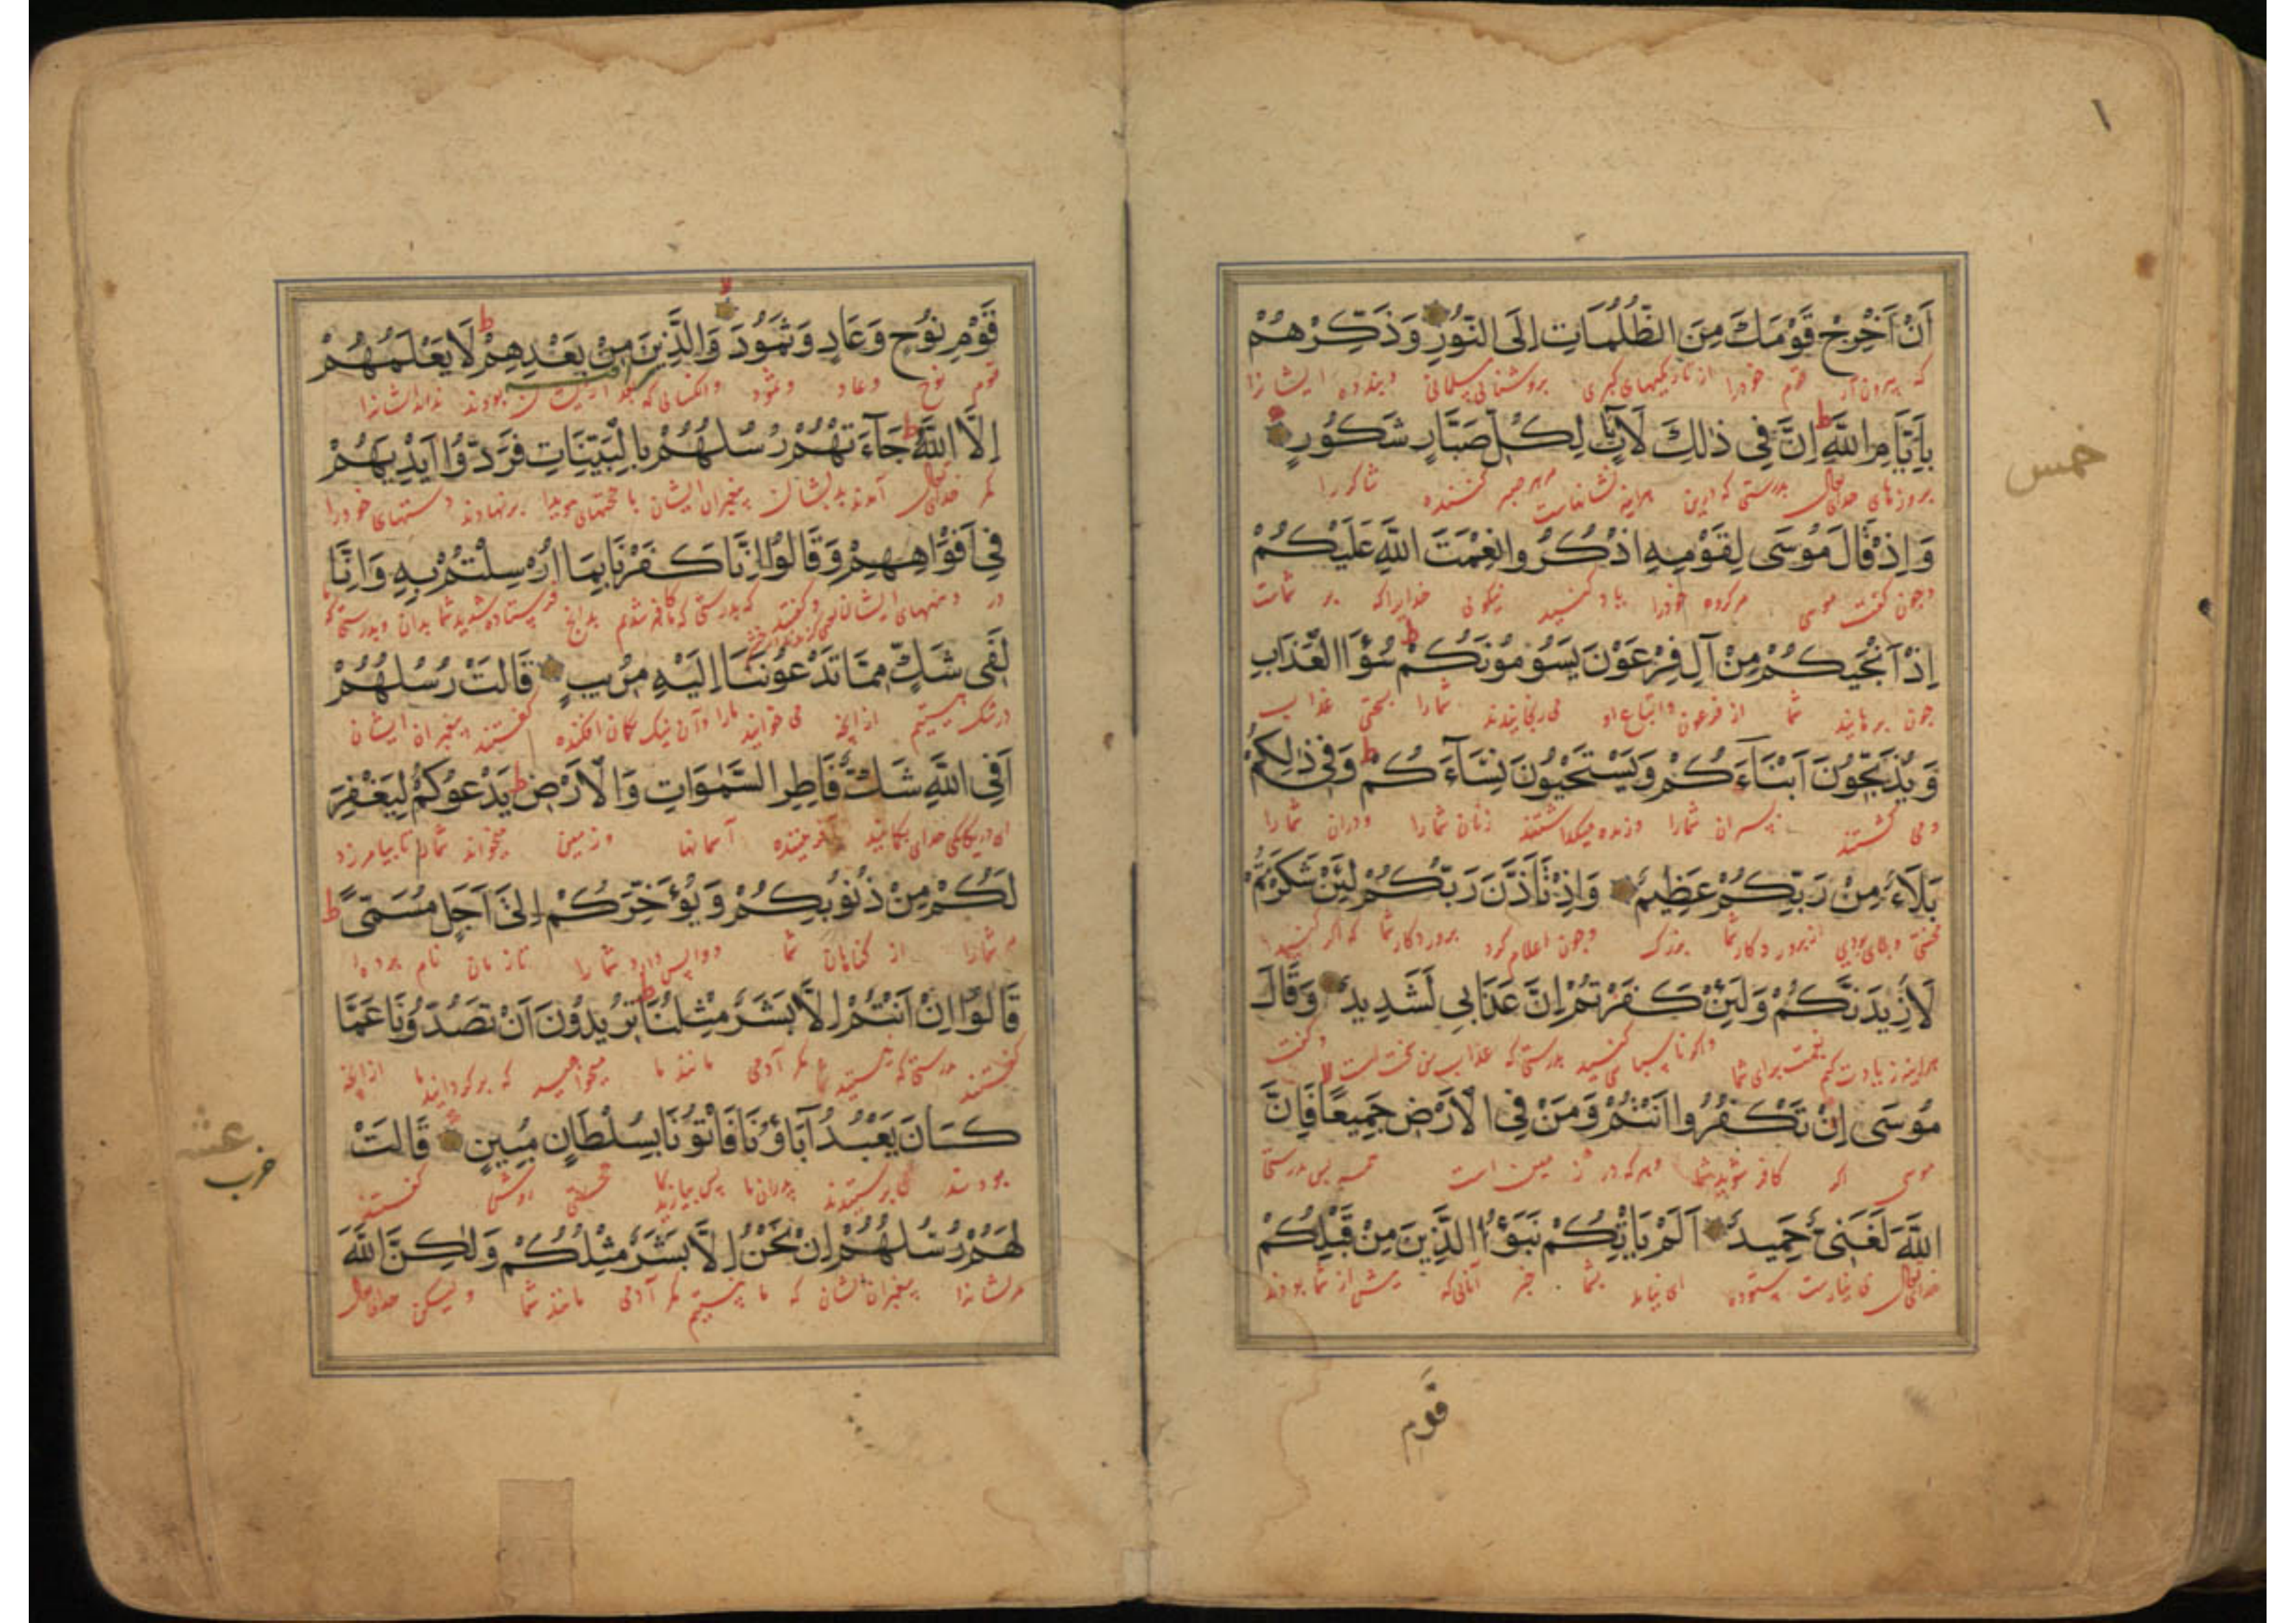 ١
اَنْ اَخْرِجْ قَوْمَكَ مِنَ الظُّلُمَاتِ اِلَى النُّورِ وَذَكِّرْهُمْ
که بیرون آر قوم خودرا از تاریکیهای کبری بروشنائی مسلمانی و پندده ایشانرا
بِاَيَّامِ اللَّهِ ط اِنَّ فِي ذٰلِكَ لَاٰيَاتٍ لِكُلِّ صَبَّارٍ شَكُورٍ
بروزهای خدای تعالی بدرستی که درین هراینه نشانهاست مرهر صبر کننده شاکر را
خمس
وَاِذْ قَالَ مُوسَى لِقَوْمِهِ اذْكُرُوا نِعْمَتَ اللَّهِ عَلَيْكُمْ
وچون گفت موسی مرگروه خودرا یاد کنید نیکوئی خدایراکه بر شماست
اِذْ اَنْجٰيكُمْ مِنْ آلِ فِرْعَوْنَ يَسُومُونَكُمْ ط سُوٓءَ الْعَذَابِ
چون برهانید شما از فرعون واتباع او می رنجانیدند شمارا بسختی عذاب
وَيُذَبِّحُونَ اَبْنَاءَكُمْ وَيَسْتَحْيُونَ نِسَاءَكُمْ ط وَفِي ذٰلِكُمْ
ومی کشتند پسران شمارا وزنده میگذاشتند زنان شمارا ودران شمارا
بَلَاءٌ مِنْ رَبِّكُمْ عَظِيمٌ وَاِذْ تَاَذَّنَ رَبُّكُمْ لَئِنْ شَكَرْتُمْ
از پروردکار شما بزرک وچون اعلام کرد پروردکار شما که اکر
لَاَزِيدَنَّكُمْ وَلَئِنْ كَفَرْتُمْ اِنَّ عَذَابِي لَشَدِيدٌ وَقَالَ
هراینه زیادت کنم نعمت برای شما واکر ناسپاسی کنید بدرستی که عذاب من سخت است وگفت
مُوسَى اِنْ تَكْفُرُوا اَنْتُمْ وَمَنْ فِي الْاَرْضِ جَمِيعًا فَاِنَّ
موسی اکر کافر شوید شما وهرکه در زمین است همه پس بدرستی
اللَّهَ لَغَنِيٌّ حَمِيدٌ اَلَمْ يَاْتِكُمْ نَبَؤُا الَّذِينَ مِنْ قَبْلِكُمْ
خدای تعالی بی نیازست ستوده ای نیامد بشما خبر آنانی که پیش از شما بودند
قَوْمِ
قَوْمِ نُوحٍ وَعَادٍ وَثَمُودَ وَالَّذِينَ مِنْ بَعْدِهِمْ ط لَا يَعْلَمُهُمْ
قوم نوح وعاد وثمود وانکسانی که بعد ازیشان بودند نداندشانرا
اِلَّا اللَّهُ ط جَاءَتْهُمْ رُسُلُهُمْ بِالْبَيِّنَاتِ فَرَدُّوا اَيْدِيَهُمْ
مکر خدای تعالی آمدند بدیشان پیغمبران ایشان با حجتهای هویدا برنهادند دستهای خودرا
فِي اَفْوَاهِهِمْ وَقَالُوا اِنَّا كَفَرْنَا بِمَا اُرْسِلْتُمْ بِهِ وَاِنَّا
در دهنهای ایشان وگفتند که بدرستی که ما کافر شدیم بدانچ فرستاده شدید شما بدان وبدرستی که ما
لَفِي شَكٍّ مِمَّا تَدْعُونَنَا اِلَيْهِ مُرِيبٍ قَالَتْ رُسُلُهُمْ
در شک هستیم ازانچه می خوانید مارا بدان نیک کمان افکنده گفتند پیغمبران ایشان
اَفِي اللَّهِ شَكٌّ فَاطِرِ السَّمٰوَاتِ وَالْاَرْضِ ط يَدْعُوكُمْ لِيَغْفِرَ
خدای آفریننده آسمانها وزمین میخواند شمارا تا بیامرزد
لَكُمْ مِنْ ذُنُوبِكُمْ وَيُؤَخِّرَكُمْ اِلَى اَجَلٍ مُسَمًّى ط
مر شمارا از گناهان شما وواپس دارد شمارا تا زمان نام برده
قَالُوا اِنْ اَنْتُمْ اِلَّا بَشَرٌ مِثْلُنَا ط تُرِيدُونَ اَنْ تَصُدُّونَا عَمَّا
گفتند بدرستی که نیستید مکر آدمی مانند ما میخواهید که برگردانید ما ازانچه
كَانَ يَعْبُدُ آبَاؤُنَا فَاْتُونَا بِسُلْطَانٍ مُبِينٍ قَالَتْ
بودند می پرستیدند پدران ما پس بیارید بما حجتی روشن گفتند
عشر
حزب
لَهُمْ رُسُلُهُمْ اِنْ نَحْنُ اِلَّا بَشَرٌ مِثْلُكُمْ وَلٰكِنَّ اللَّهَ
مرایشانرا پیغمبران ایشان که ما نیستیم مکر آدمی مانند شما ولیکن خدای تعالی